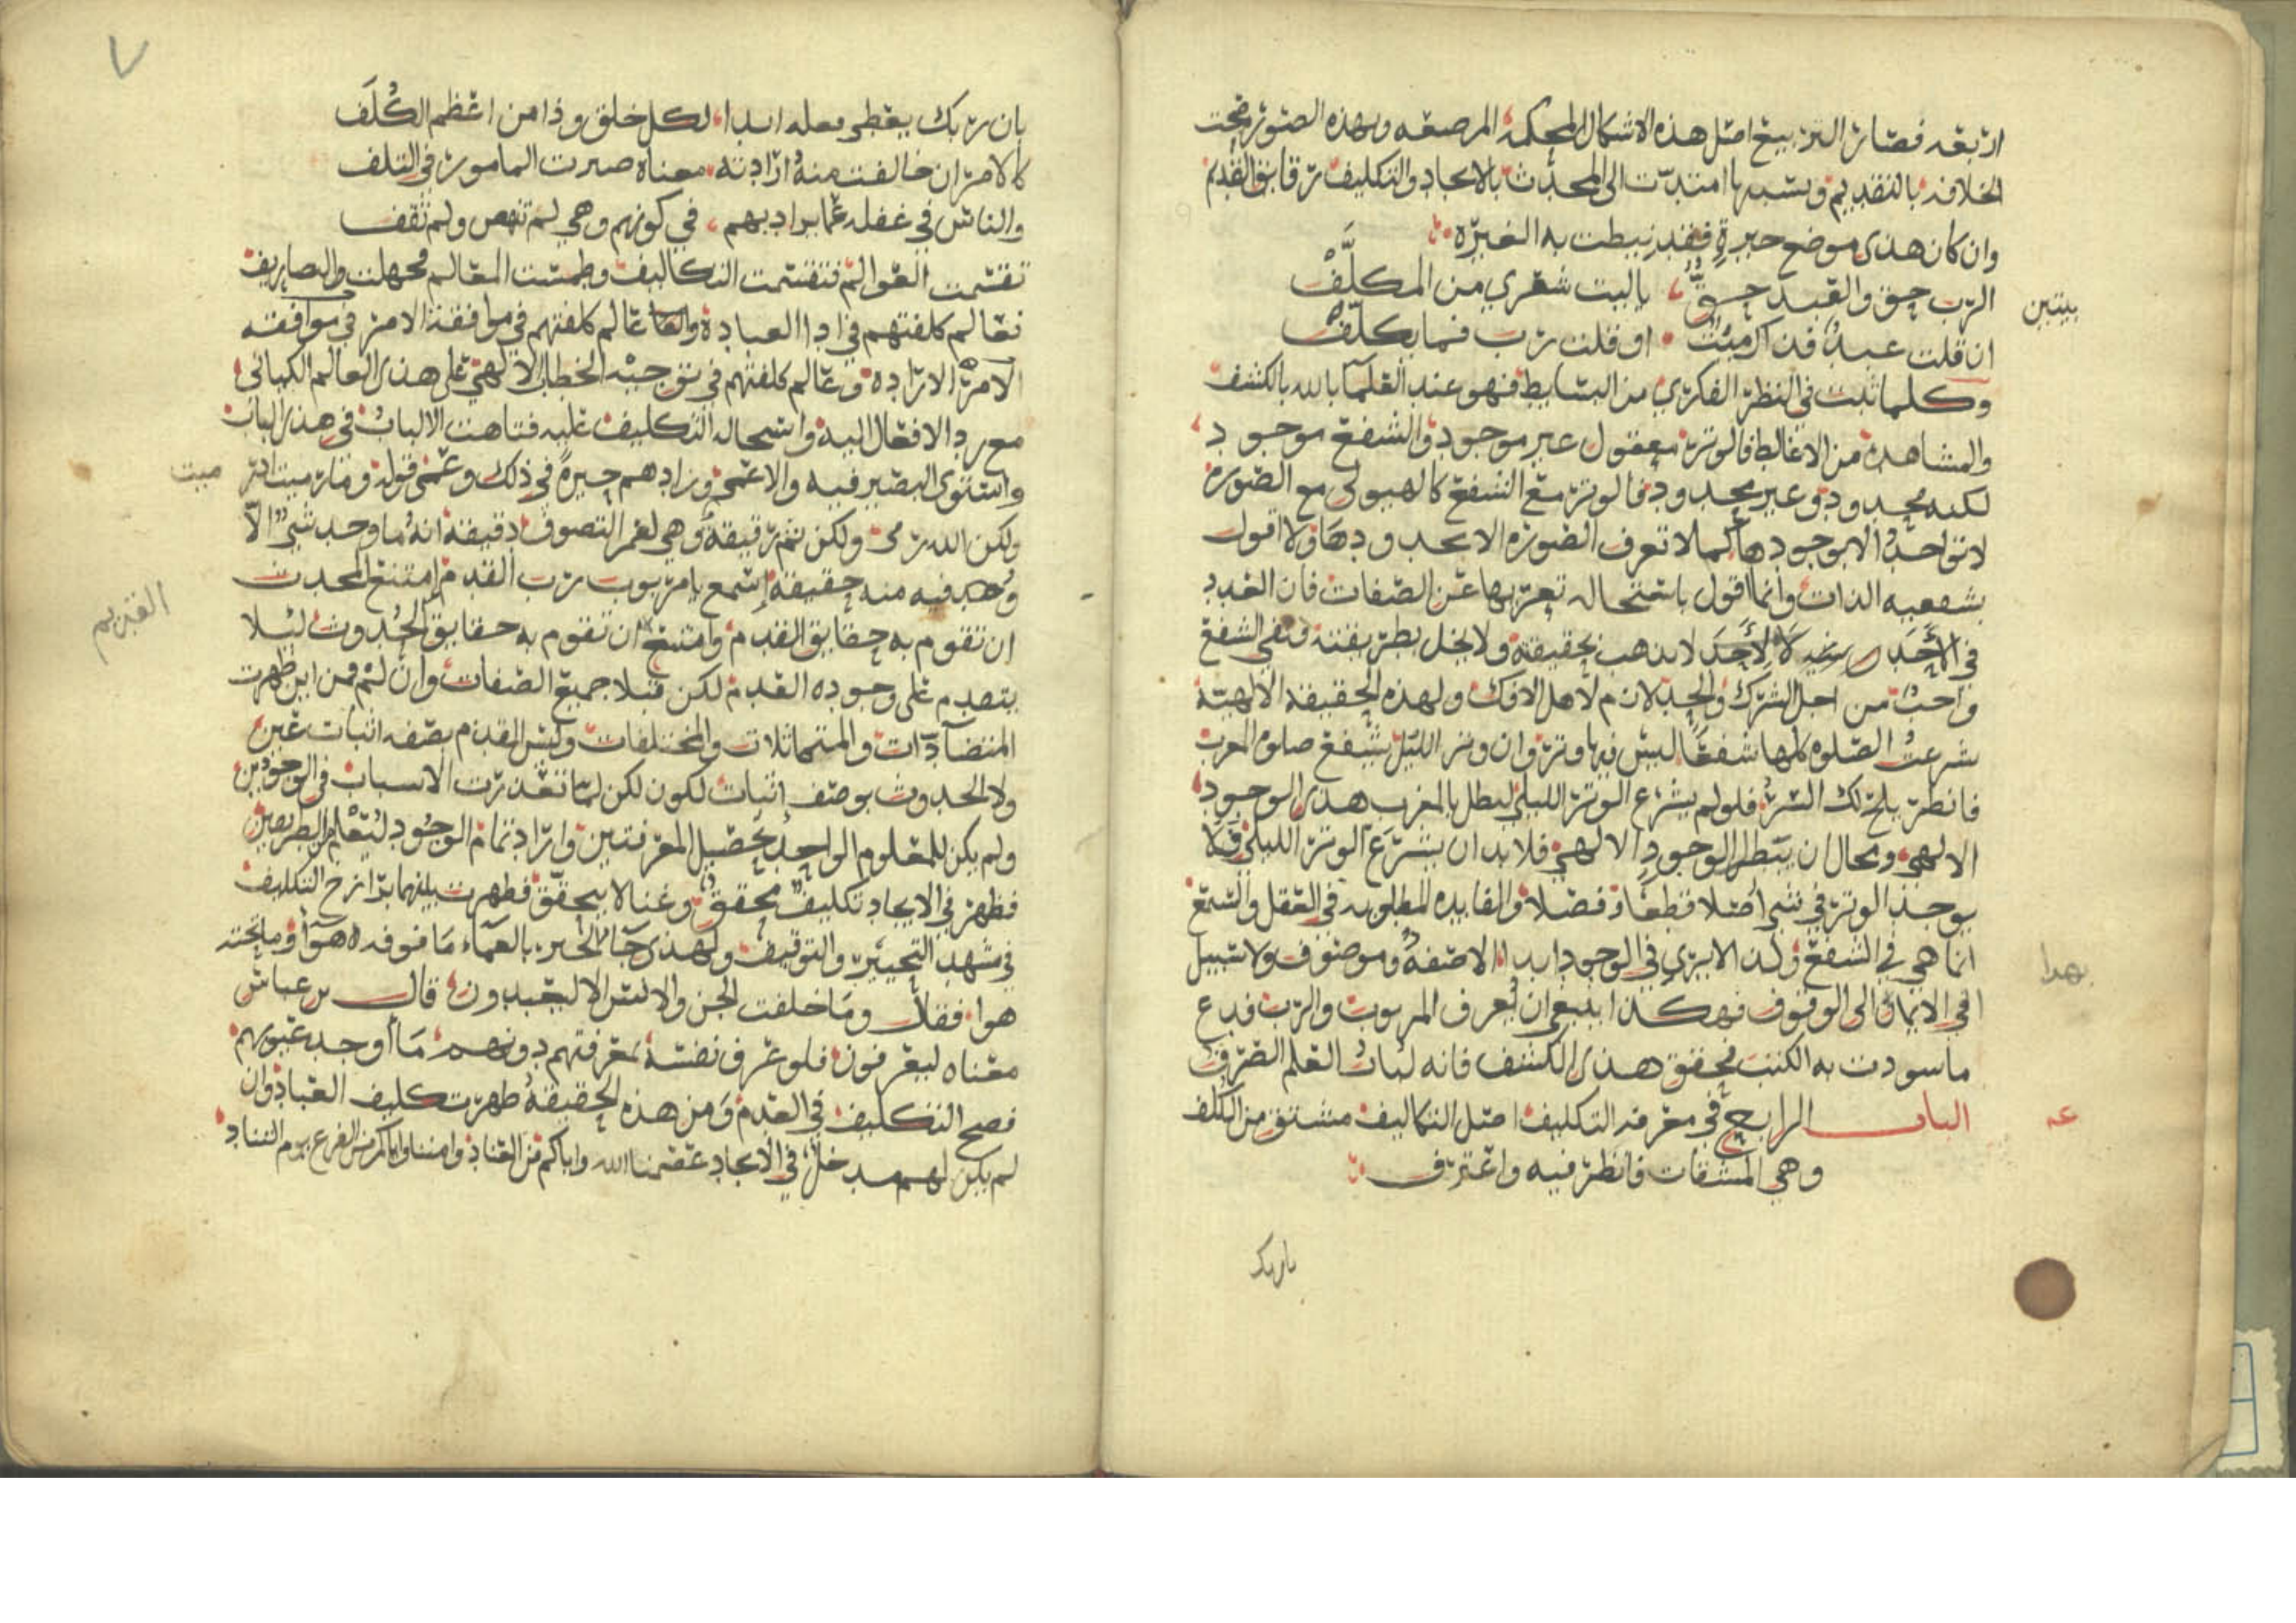 اربعه فصار التربيع اصل هذه الاشكال المحكمة المرصعه وبهذه الصور صحت
الخلافة بالتقديم وسببها امتدت الى المحدث بالايجاد والتكليف رقايق القديم
وان كان هذى موضع حيرة فقد نيطت به الغيرة
الرب حق والعبد حق يا ليت شعري من المكلف
ان قلت عبد فذاك ميت او قلت رب فما يكلف
بيتين
وكلما ثبت في النظر الفكري من البسايط فهو عند العلما بالله بالكشف
والمشاهدة من الاغاليط فالوتر معقول غير موجود والشفع موجود
لكنه محدود وغير محدود فالوتر مع الشفع كالهيولى مع الصورة
لا توجد الا بوجودها كما لا تعرف الصورة الا بحدودها ولا اقول
بشفعيه الذات وانما اقول باستحاله تعريها عن الصفات فان الفرد
في الاحد لا يذهب بحقيقة ولا يخل بطريقته ونفى الشفع
واجب من اجل الشرك والجد لازم لاهل الافك ولهذه الحقيقة الالهية
شرعت الصلوة كلها شفعا ليس فيها وتر وان وتر الليل يشفع صلوه المغرب
فانظر يلح لك السر فلو لم يشرع الوتر الليلي لبطل بالمغرب هذى الوجود
الالهي ومحال ان يبطل الوجود الالهي فلا بد ان يشرع الوتر الليلي فلا
يوجد الوتر في شي اصلا قطعا وفصلا والفايده المطلوبه في العقل والسمع
انما هي في الشفع ولذا لا يرى في الوجود ابدا الا صفة وموصوف ولا سبيل
بهدا
في الايمان الى الوقوف فهكذا ينبغي ان يعرف المربوب والرب فدع
ما سودت به الكتب محقق هذى الكشف فانه لباب العلم الصرف
الباب الرابع في معرفة التكليف اصل التكاليف مشتق من الكلف
عه
وهي المشقات فانظر فيه واعترف
بان ربك
بان ربك يعطي فعله ابدا لكل خلق وذا من اعظم الكلف
كالامر ان خالفت منه ارادته معناه صيرت المامور في التلف
والناس في غفله عما يراد بهم في كونهم وهي لم تنهض ولم تقف
تقسمت العوالم فتقسمت التكاليف وطمست المعالم فجهلت والتصاريف
فعالم كلفتهم في اداا العبادة وعالم كلفتهم في موافقة الامر في موافقته
الامر الارادة وعالم كلفتهم في توجيه الخطاب الالهي على هذى العالم الكياني
مع رد الافعال اليه واستحاله التكليف عليه فتاهت الالباب في هذى الباب
واستوى البصير فيه والاعمى وزادهم حيرة في ذلك وعمى قوله وما رميت اذ رميت
ولكن الله رمى ولكن ثم رقيقة وهي لعمر التصوف دقيقة انه ما وجد شي الا
وجد فيه منه حقيقة اسمع يا مربوب رب القدم امتنع المحدث
القديم
ان تقوم به حقايق القدم وامتنع ان تقوم به حقايق الحدوث ليلا
يتصدم على وجوده القدم لكن قبلا جميع الصفات وان لم فمن اين ظهرت
المتضادات والمتماثلات والمختلفات وليس القدم بصفه اثبات عين
ولا الحدوث بوصف اثبات لكون لكن لما تعذرت الاسباب في الوجودين
ولم يكن للمعلوم الواحد تحصيل المعرفتين واراد تمام الوجود لتعلم من الطريقين
فظهر في الايجاد تكليف محقق وغنا لا يتحقق فظهرت بينهما برازخ التكليف
في مشهد التحيير والتوقيف ولهذى جا الخبر بالعماء ما فوقه هوا وما تحته
هوا فقال وما خلقت الجن والانس الا ليعبدون قال بن عباس
معناه ليعرفون فلو عرف نفسه بمعرفتهم دونهم ما اوجد عيونهم
فصح التكليف في القدم ومن هذه الحقيقة ظهرت كليف العباد وان
لم يكن لهم مدخل في الايجاد عصمنا الله واياكم من العناد وامننا واياكم من الفزع يوم التناد